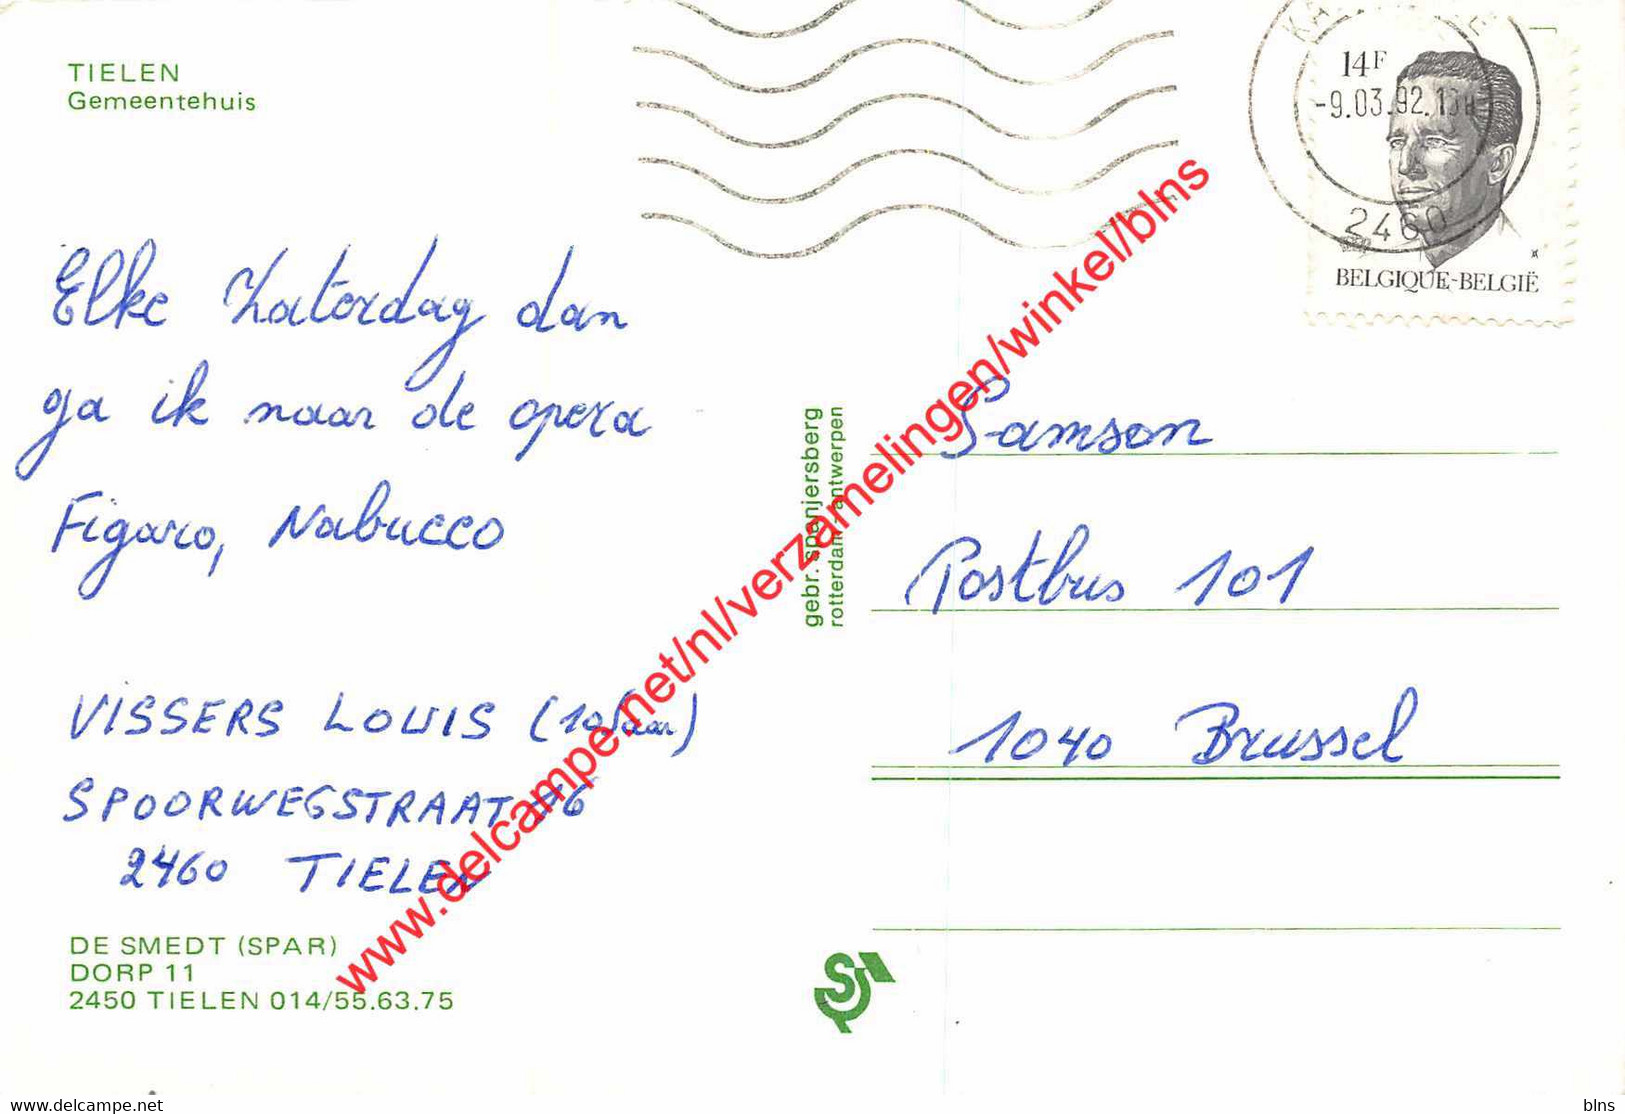 TIELEN
Gemeentehuis
14F
-9.03.92.
2460
BELGIQUE-BELGIË
Elke Zaterdag dan
ga ik naar de opera
Figaro, Nabucco
VISSERS LOUIS (10 Jaar)
SPOORWEGSTRAAT 76
2460 TIELEN
DE SMEDT (SPAR)
DORP 11
2450 TIELEN 014/55.63.75
gebr. spanjersberg
rotterdam-antwerpen
Samson
Postbus 101
1040 Brussel
www.delcampe.net/nl/verzamelingen/winkel/blns
www.delcampe.net
blns